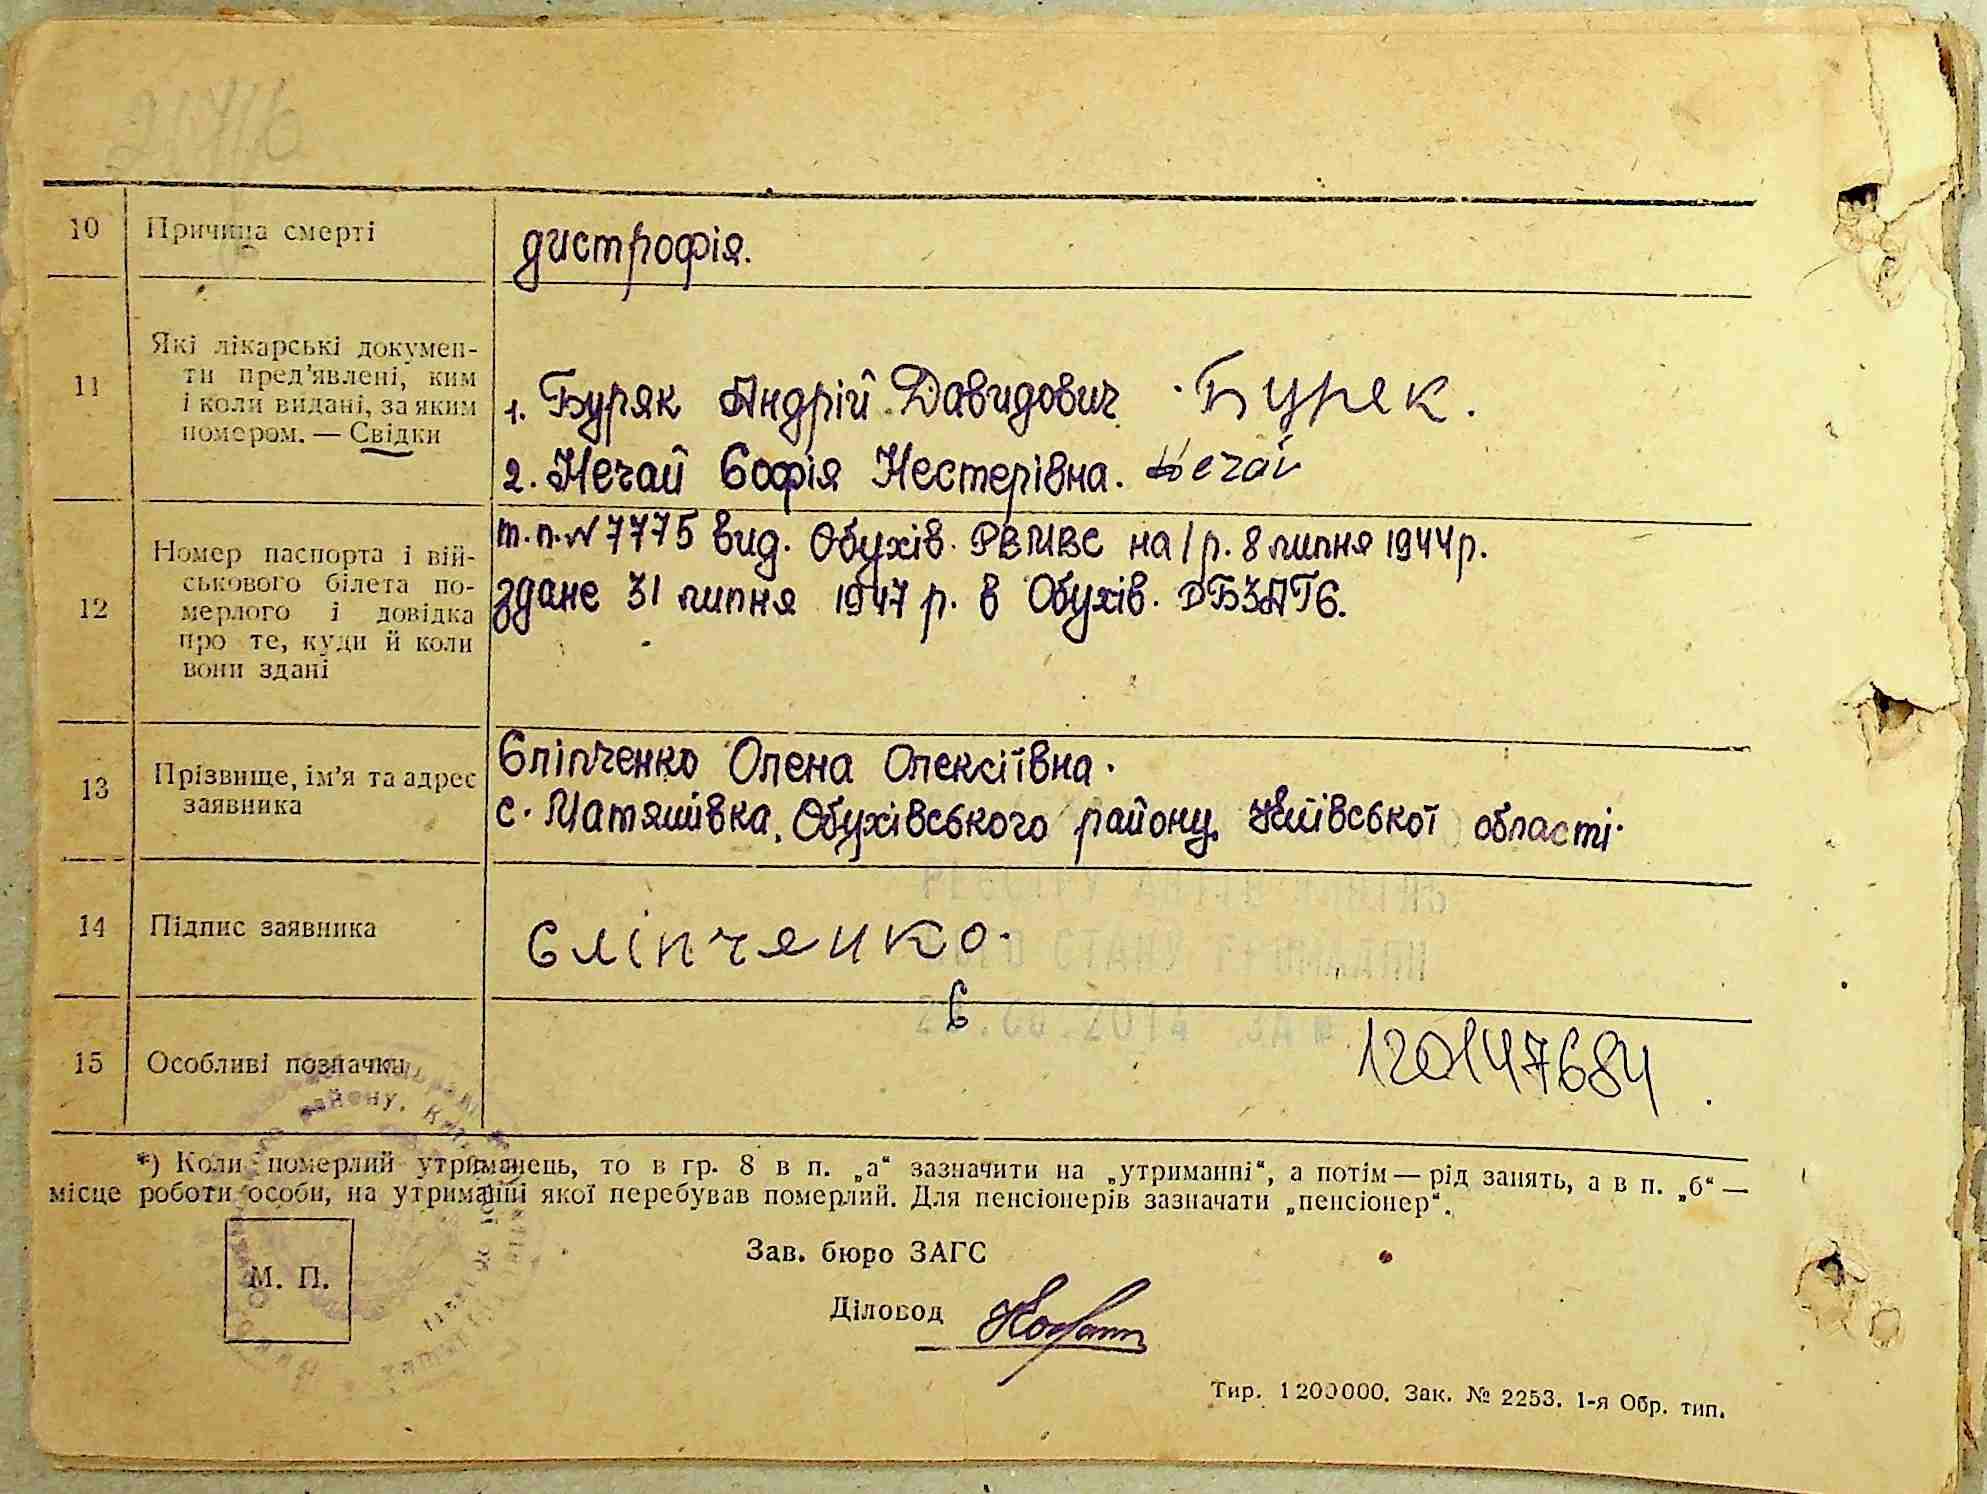 10 Причина смерті
дистрофія.
11 Які лікарські докумен-
ти пред'явлені, ким
і коли видані, за яким
номером. — Свідки
1. Буряк Андрій Давидович Буряк.
2. Нечай Софія Нестерівна. Нечай
12 Номер паспорта і вій-
ськового білета по-
мерлого і довідка
про те, куди й коли
вони здані
т.п. № 7775 вид. Обухів. РВМВС на 1 р. 8 липня 1944 р.
здане 31 липня 1947 р. в Обухів. РБЗАГС.
13 Прізвище, ім'я та адрес
заявника
Сліпченко Олена Олексіївна.
с. Матяшівка, Обухівського району, Київської області.
РЕЄСТРУ АКТІВ
СТАНУ ГРОМАДЯН
14 Підпис заявника
Сліпчянко.
15 Особливі позначки
120147684
*) Коли померлий утриманець, то в гр. 8 в п. „а“ зазначити на „утриманні“, а потім — рід занять, а в п. „б“ —
місце роботи особи, на утриманні якої перебував померлий. Для пенсіонерів зазначати „пенсіонер“.
М. П.
Зав. бюро ЗАГС
Діловод
Тир. 1200000. Зак. № 2253. 1-я Обр. тип.